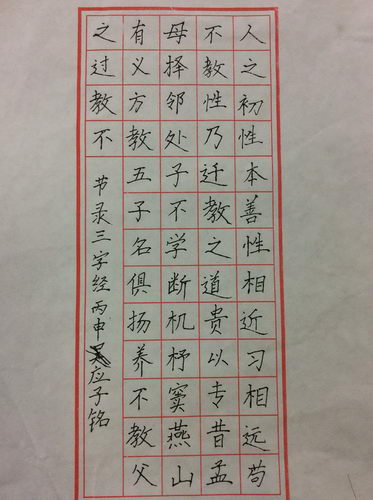 人之初性本善性相近习相远苟
不教性乃迁教之道贵以专昔孟
母择邻处子不学断机杼窦燕山
有义方教五子名俱扬养不教父
之过教不
节录三字经丙申应子铭